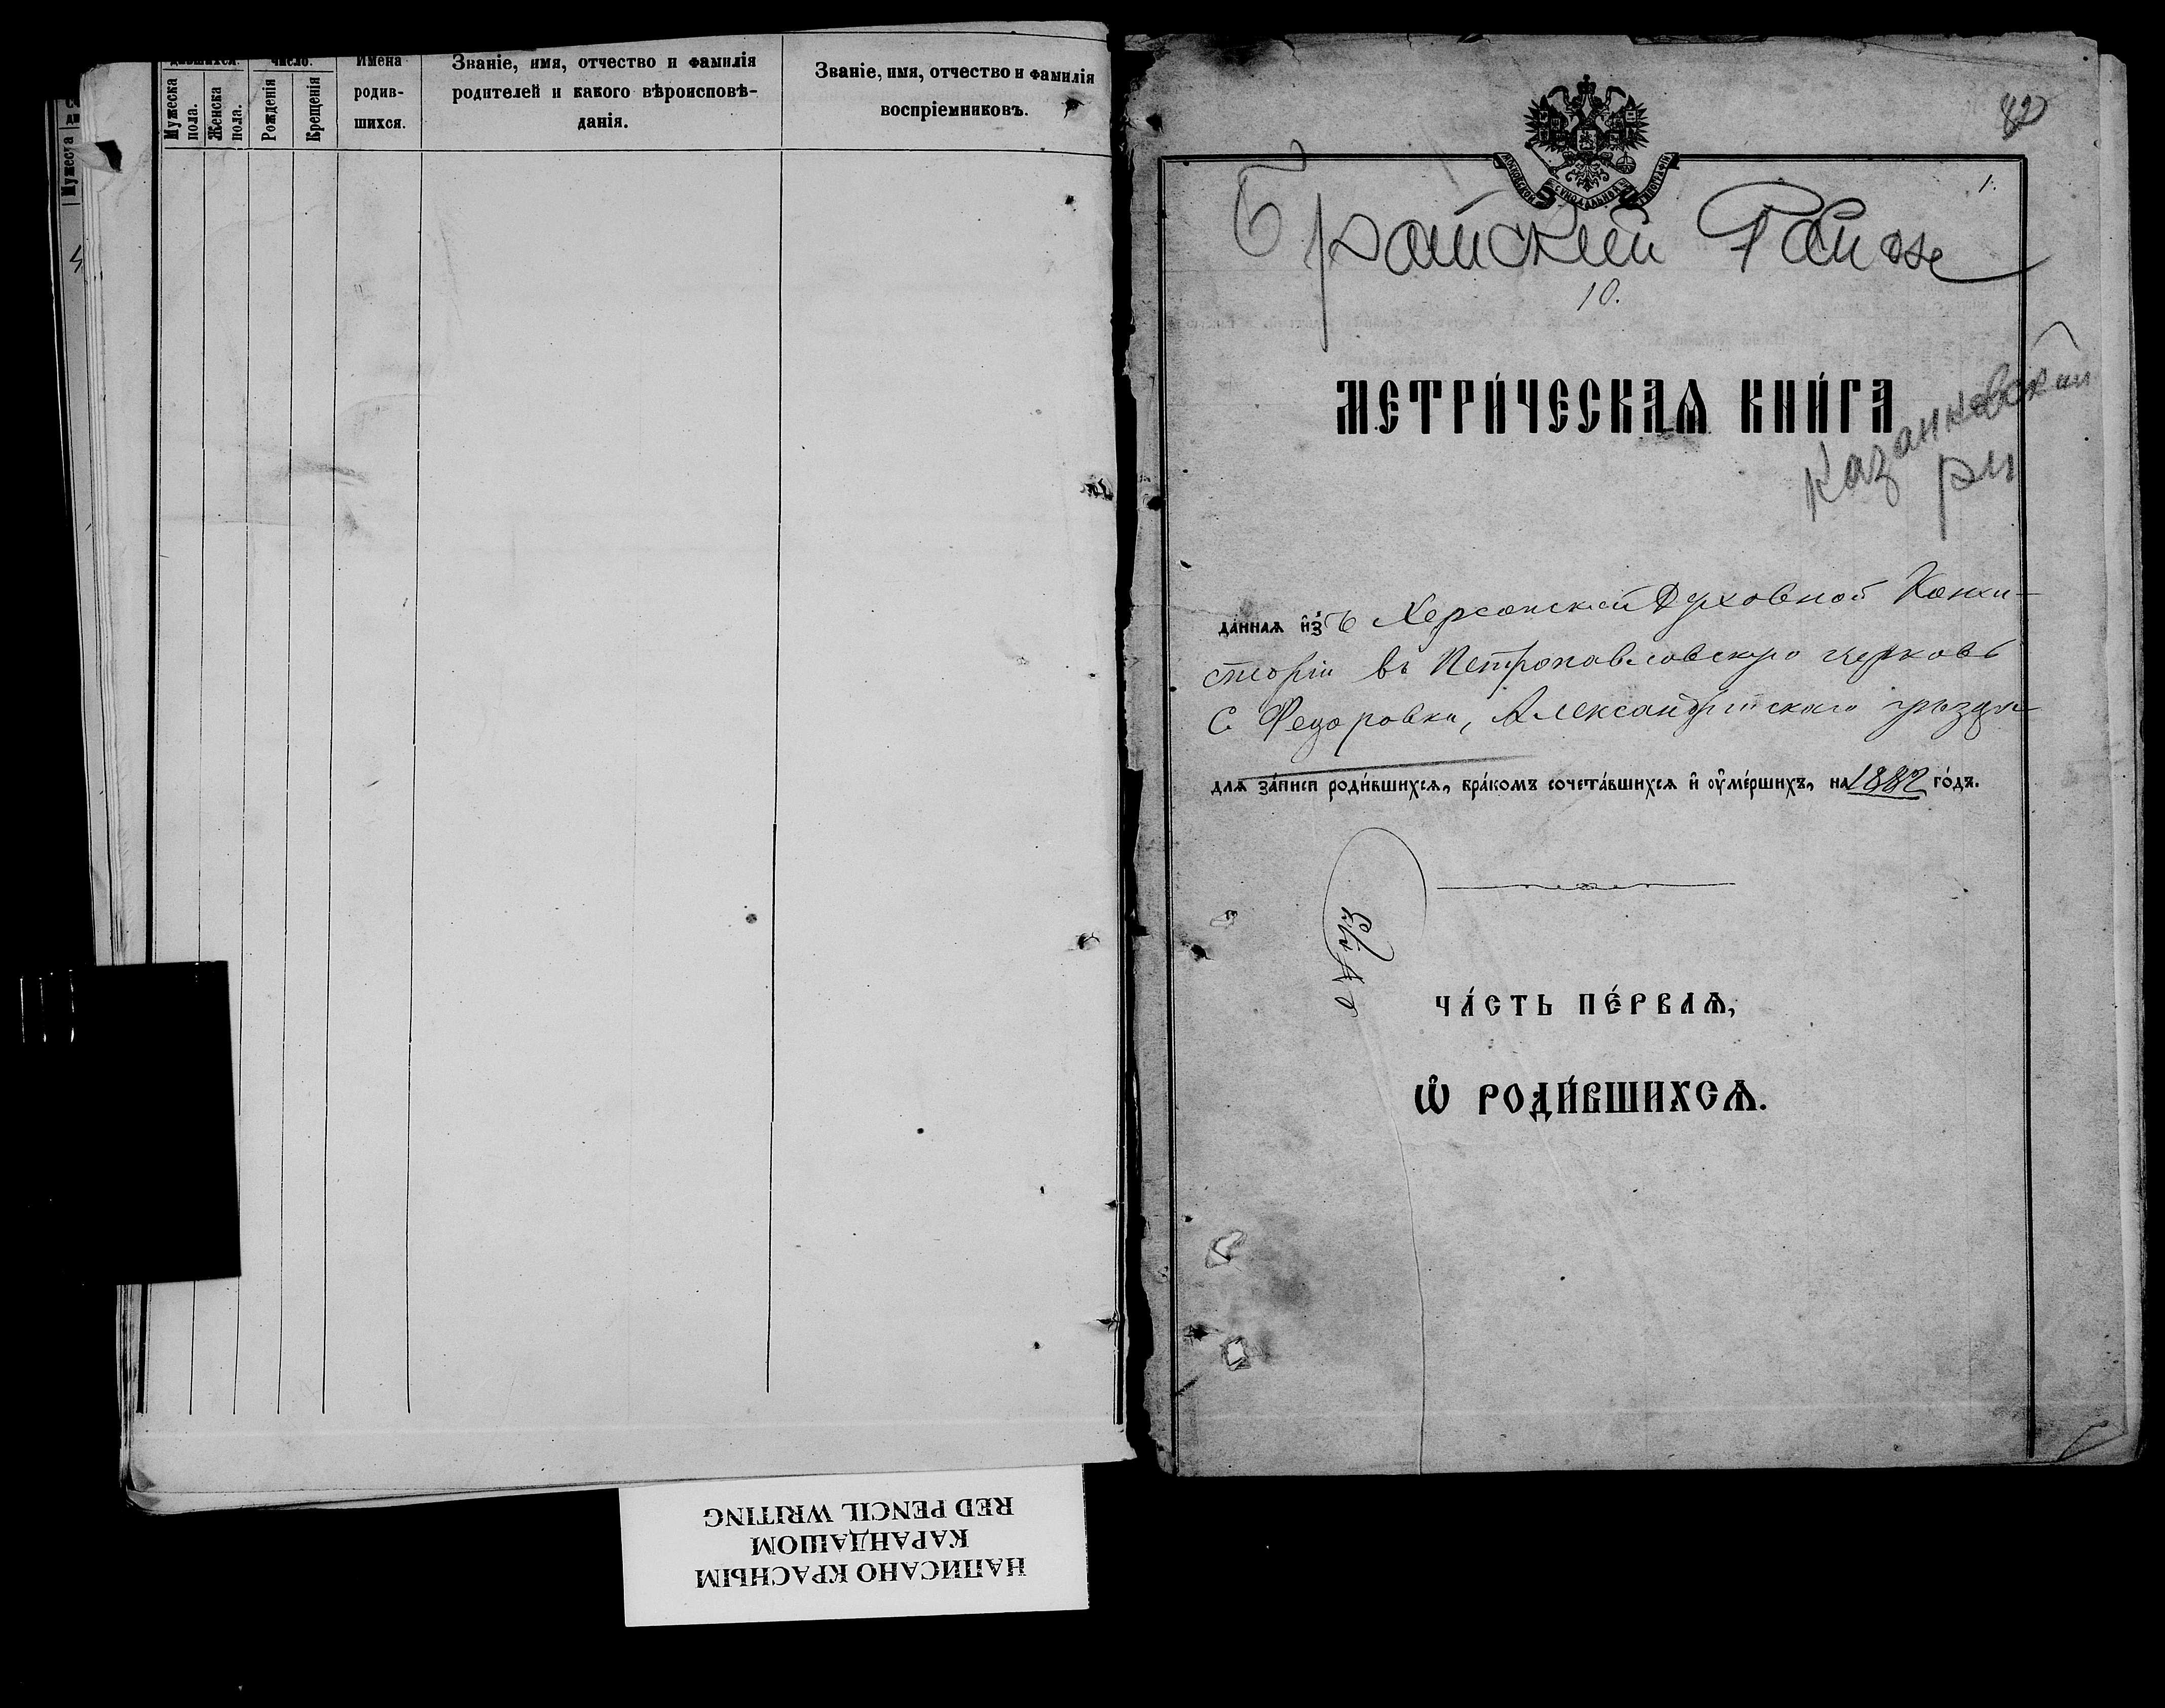 Мужеска пола.
Женска пола.
число.
Рожденія
Крещенія
Имена
родив-
шихся.
Званіе, имя, отчество и фамилія
родителей и какого вѣроисповѣ-
данія.
Званіе, имя, отчество и фамилія
воспріемниковъ.
Мужеска
82
МОСКОВСКОЙ СѴНОДАЛЬНОЙ ТИПОГРАФІИ
1.
10.
МЕТРИ́ЧЕСКАѦ КНИ́ГА
Казанковский
рн
да́ннаѧ и҆зъ Херсонской Духовной Конси-
сторіи въ Петропавловскую церковь
С. Федоровки, Александрійскаго уѣзда
длѧ за́писи роди́вшихсѧ, бра́комъ сочета́вшихсѧ и҆ ᲂу҆ме́ршихъ, на 1882 го́дъ.
ЧА́СТЬ ПЕ́РВАѦ,
Ѽ РОДИ́ВШИХСѦ.
НАПИСАНО КРАСНЫМ
КАРАНДАШОМ
RED PENCIL WRITING